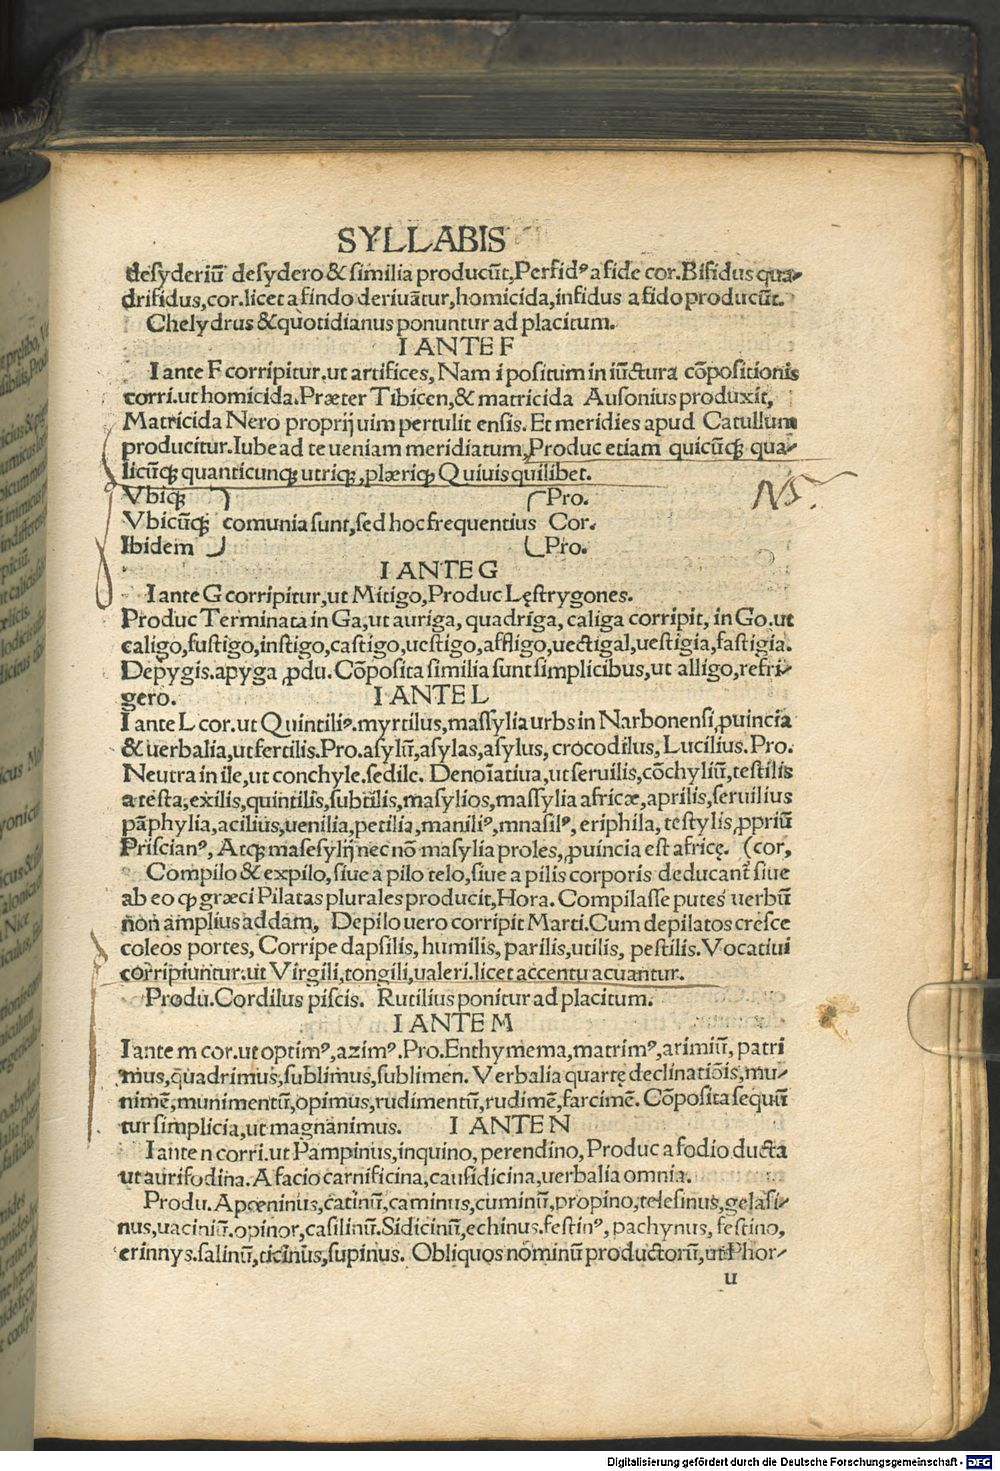 SYLLABIS
desyderiū desydero & similia producūt, Perfidꝰ a fide cor. Bifidus qua-
drifidus, cor. licet a findo deriuātur, homicida, infidus a fido producūt.
Chelydrus & quotidianus ponuntur ad placitum.
I ANTE F
I ante F corripitur. ut artifices, Nam i positum in iūctura cōpositionis
corri. ut homicida. Præter Tibicen, & matricida Ausonius produxit,
Matricida Nero proprij uim pertulit ensis. Et meridies apud Catullum
producitur. Iube ad te ueniam meridiatum, Produc etiam quicūqꝫ qua-
licūqꝫ quanticunqꝫ utriqꝫ, plæriqꝫ Quiuis quilibet.
Vbiqꝫ Pro.
NB.
Vbicūqꝫ comunia sunt, sed hoc frequentius Cor.
Ibidem Pro.
I ANTE G
I ante G corripitur, ut Mitigo, Produc Lęstrygones.
Produc Terminata in Ga, ut auriga, quadriga, caliga corripit, in Go. ut
caligo, fustigo, instigo, castigo, uestigo, affligo, uectigal, uestigia, fastigia.
Depygis. apyga ꝓdu. Cōposita similia sunt simplicibus, ut alligo, refri-
gero. I ANTE L
I ante L cor. ut Quintiliꝰ. myrtilus, massylia urbs in Narbonensi ꝓuincia
& uerbalia, ut fertilis. Pro. asylū, asylas, asylus, crocodilus, Lucilius. Pro.
Neutra in ile, ut conchyle. sedile. Denoīatiua, ut seruilis, cōchyliū, testilis
a testa, exilis, quintilis, subtilis, masylios, massylia africæ, aprilis, seruilius
pāphylia, acilius, uenilia, petilia, maniliꝰ, mnasilꝰ, eriphila, testylis, ꝓpriū
Priscianꝰ, Atqꝫ masesylij nec nō masylia proles, ꝓuincia est africę. (cor,
Compilo & expilo, siue a pilo telo, siue a pilis corporis deducant̄ siue
ab eo ꝙ græci Pilatas plurales producit, Hora. Compilasse putes uerbū
non amplius addam, Depilo uero corripit Marti. Cum depilatos cresce
coleos portes, Corripe dapsilis, humilis, parilis, utilis, pestilis. Vocatiui
corripiuntur. ut Virgili, tongili, ualeri. licet accentu acuantur.
Produ. Cordilus piscis. Rutilius ponitur ad placitum.
I ANTE M
I ante m cor. ut optimꝰ, azimꝰ. Pro. Enthymema, matrimꝰ, arimiū, patri
mus, quadrimus, sublimus, sublimen. Verbalia quartę declinatiōis, mu-
nimē, munimentū, opimus, rudimentū, rudimē, farcimē. Cōposita sequū
tur simplicia, ut magnanimus. I ANTE N
I ante n corri. ut Pampinus, inquino, perendino, Produc a fodio ducta
ut aurifodina. A facio carnificina, causidicina, uerbalia omnia.
Produ. Apœninus, catinū, caminus, cuminū, propino, telesinus, gelasi-
nus, uaciniū. opinor, casilinū. Sidicinū, echinus. festinꝰ, pachynus, festino,
erinnys. salinū, ticinus, supinus. Obliquos nominū productorū, ut Phor-
u
Digitalisierung gefördert durch die Deutsche Forschungsgemeinschaft - DFG